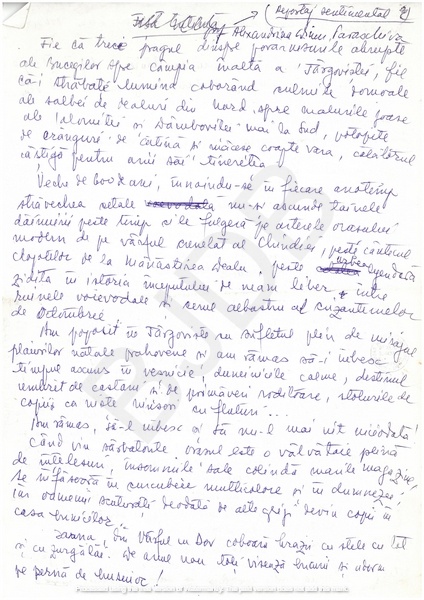 (Reportaj sentimental)
prof. Alexandrina
Fie că treci pragul dinspre povârnișurile abrupte
ale Bucegilor spre câmpia înaltă a Târgoviștei, fie
că-i străbate lumina coborând culmile domoale
ale salbei de dealuri din nord, spre malurile joase
ale Ialomiței și Dâmboviței mai la Sud,
de crânguri de cătină și măceșe coapte vara, călătorul
câștigă pentru anii săi tinerețea
Veche de 600 ani, înnoindu-se în fiecare anotimp
străvechea cetate nu-și ascunde tainele
dăinuirii peste timp și le fulgeră pe arterele orașului
modern de pe vârful crenelat al Chindiei, peste cântecul
clopotelor de la Mănăstirea Dealu, peste
zidită în istoria începutului de neam liber între
ruinele voievodale și cerul albastru al crizantemelor
de Octombrie
Am poposit în Târgoviște cu sufletul plin de mirajul
plaiurilor natale prahovene și am rămas să-i iubesc
timpul ascuns în veșnicie, duminicile calme, destinul
de castani și de primăveri roditoare, stolurile de
copii ca niște ninsori cu fluturi...
Am rămas, să-l iubesc și să nu-l mai uit niciodată!
Când vin sărbătorile orașul este o vâlvătaie plină
de înțelesuri, insomniile sale colindă marile magazine,
se înfășoară în curcubeie multicolore și în dumnezei,
iar oamenii scuturați deodată de alte griji devin copii în
casa bunicilor.
Iarna, din Vârful cu Dor coboară brazii cu stele cu tot
și cu zurgălăi. De aceea toți visează bucurii și adorm
pe pernă de busuioc!
BJDB